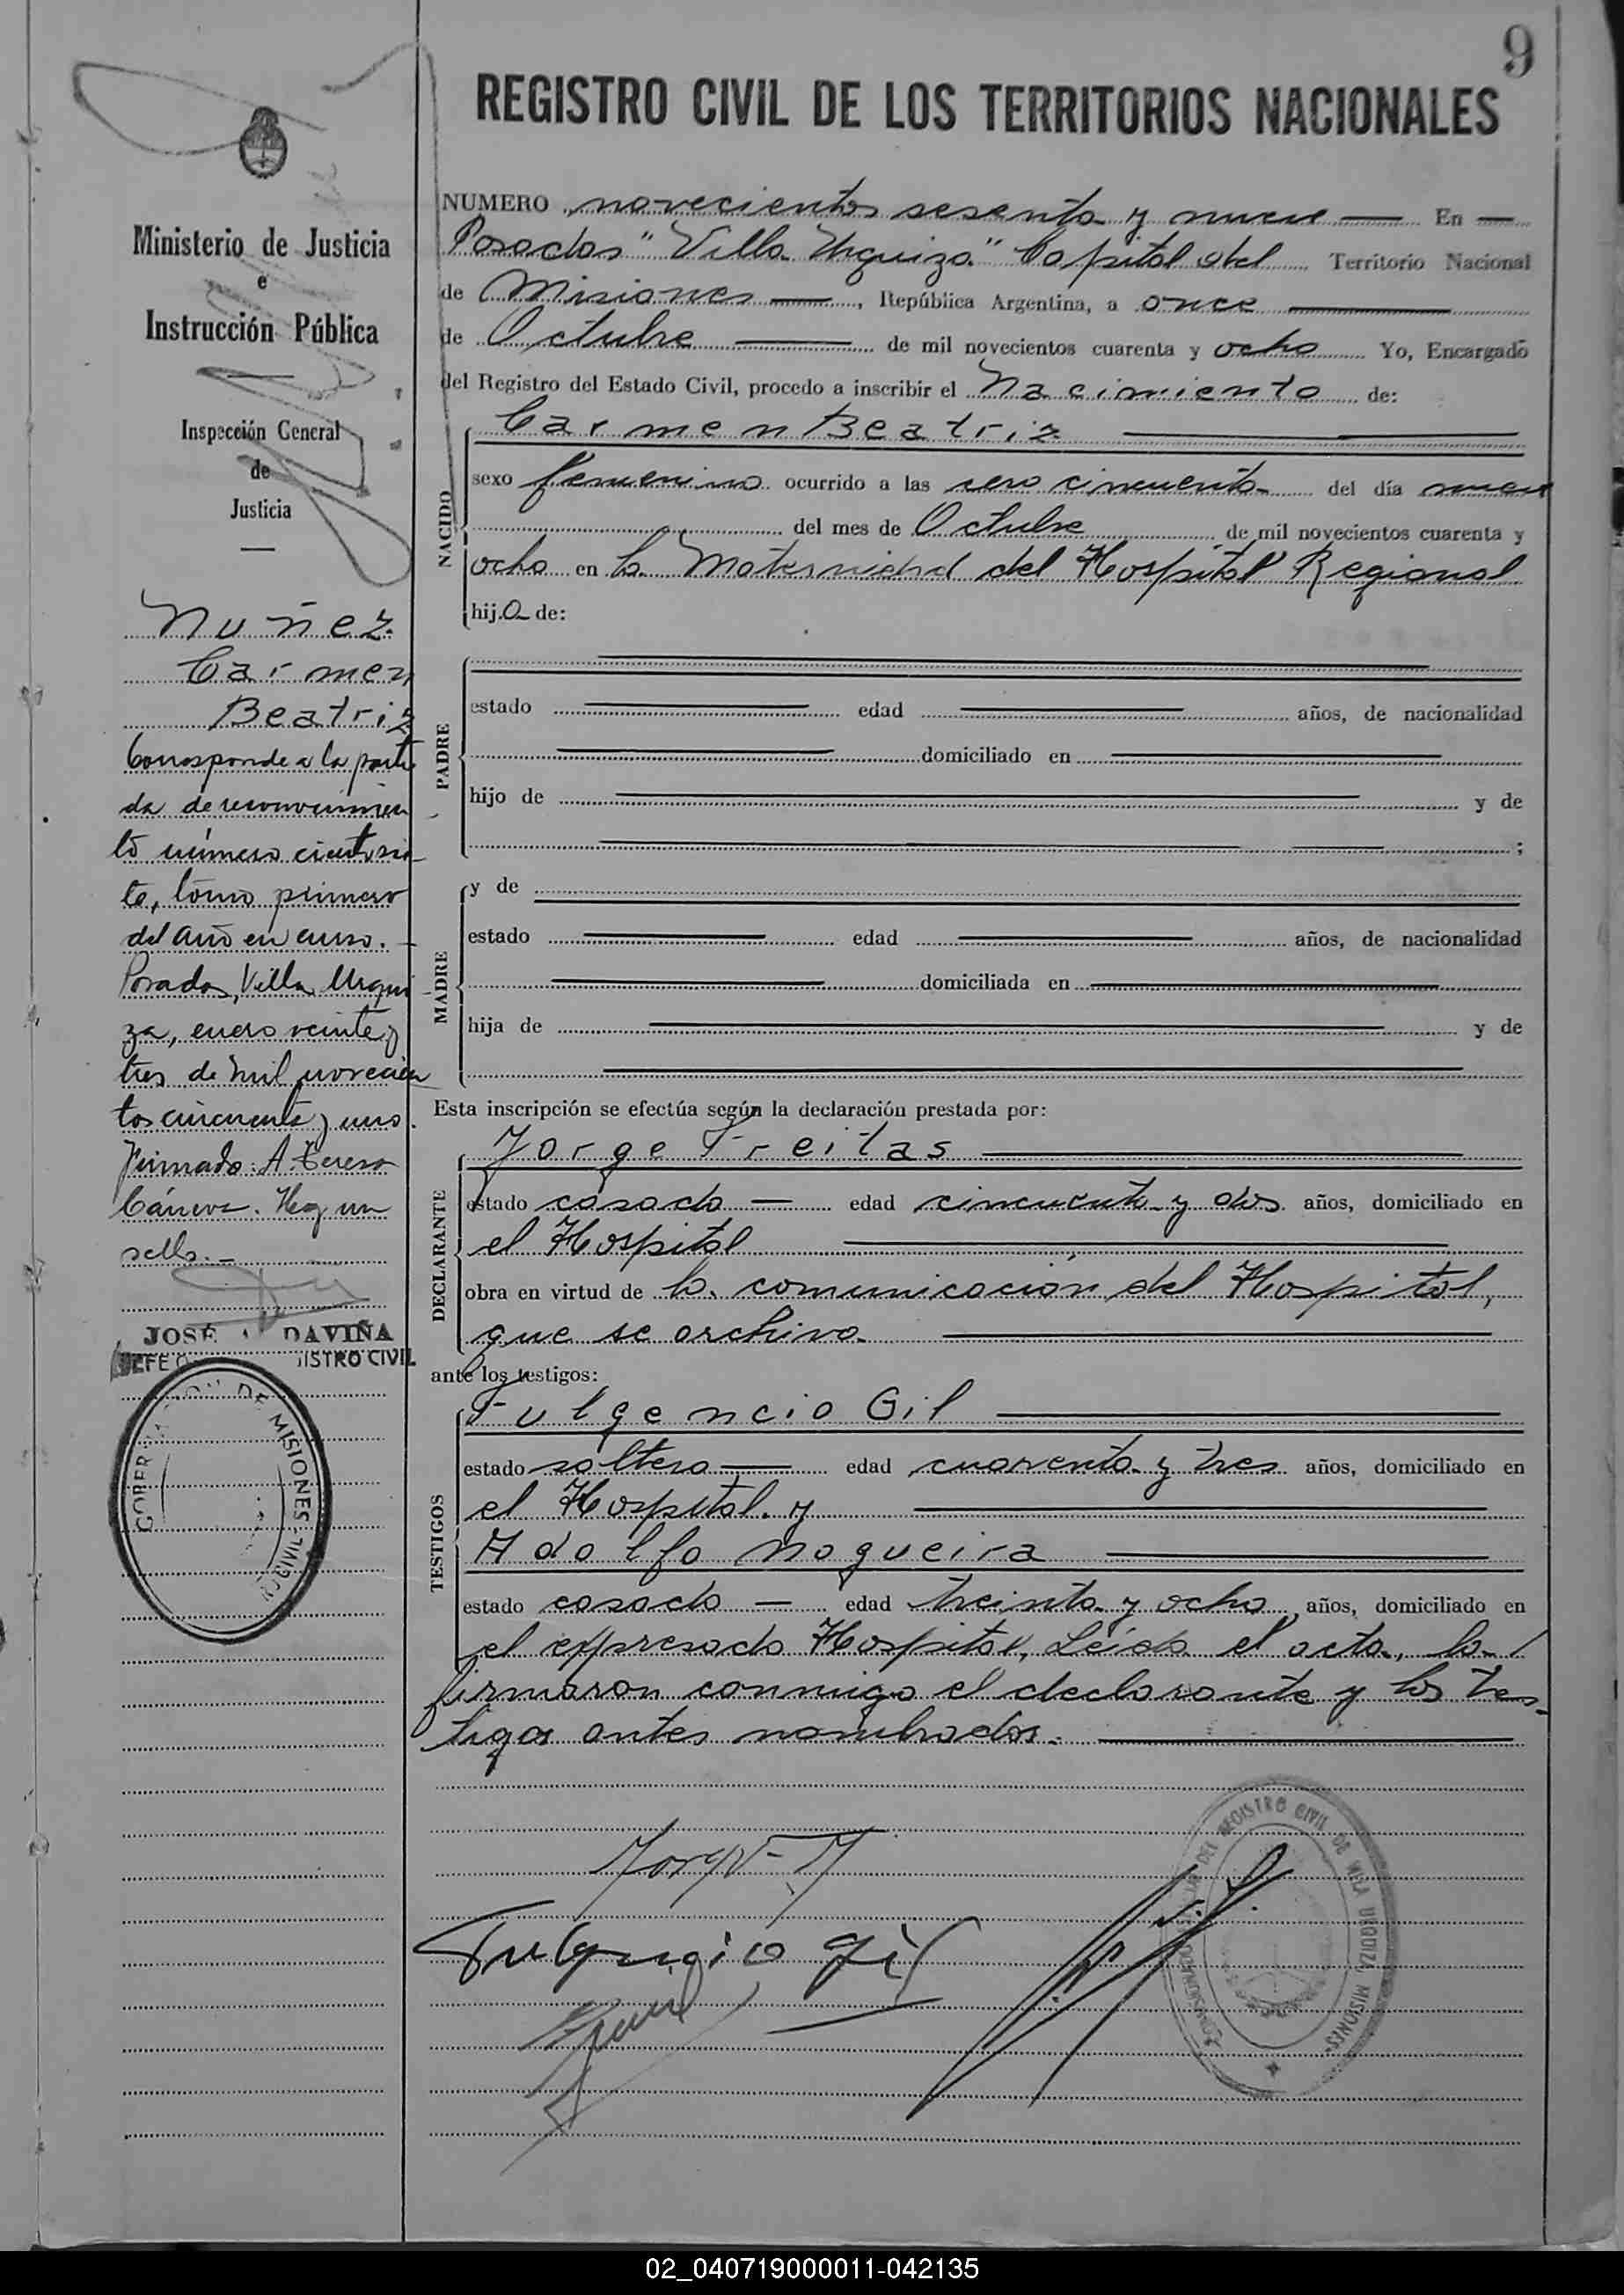 9
REGISTRO CIVIL DE LOS TERRITORIOS NACIONALES
Ministerio de Justicia
e
Instrucción Pública
Inspección General
de
Justicia
Nuñez
Carmen
Beatriz
Corresponde a la parti
da de reconocimien
to número ciento sie
te, tomo primero
del año en curso.
Posadas, Villa Urqui
za, enero veinte y
tres de mil novecien
tos cincuenta y uno.
Firmado: A. Teresa
Cáneva. Hay un
sello.-
JOSÉ DAVIÑA
JEFE ISTRO CIVIL
GOBER DE MISIONES CIVIL
NUMERO novecientos sesenta y nueve En
Posadas "Villa Urquiza" Capital del Territorio Nacional
de Misiones, República Argentina, a once
de Octubre de mil novecientos cuarenta y ocho Yo, Encargado
del Registro del Estado Civil, procedo a inscribir el Nacimiento de:
NACIDO
Carmen Beatriz
sexo femenino ocurrido a las cero cincuenta del día nueve
del mes de Octubre de mil novecientos cuarenta y
ocho en la Maternidad del Hospital Regional
hija de:
PADRE
estado edad años, de nacionalidad
domiciliado en
hijo de y de
;
MADRE
y de
estado edad años, de nacionalidad
domiciliada en
hija de y de
Esta inscripción se efectúa según la declaración prestada por:
DECLARANTE
Jorge Freitas
estado casado edad cincuenta y dos años, domiciliado en
el Hospital
obra en virtud de la comunicación del Hospital,
que se archiva
ante los testigos:
TESTIGOS
Fulgencio Gil
estado soltero edad cuarenta y tres años, domiciliado en
el Hospital y
Adolfo Nogueira
estado casado edad treinta y ocho años, domiciliado en
el expresado Hospital. Leída el acta, la
firmaron conmigo el declarante y los tes-
tigos antes nombrados.
Fulgencio Gil
DEL REGISTRO CIVIL DE VILLA URQUIZA MISIONES
02_040719000011-042135